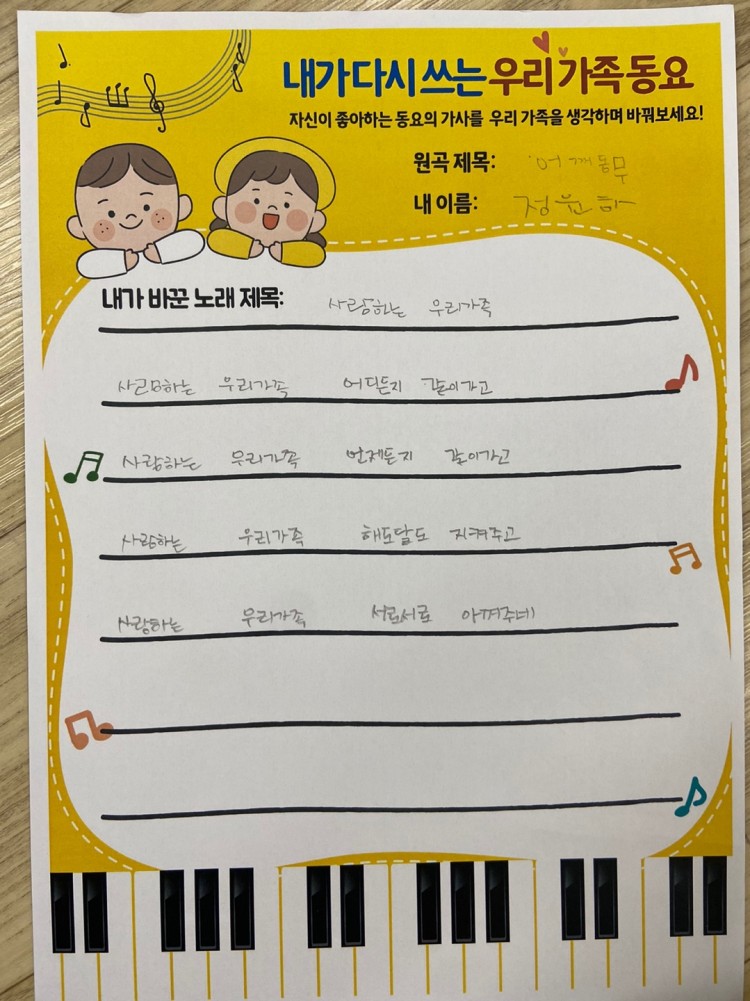 내가 다시 쓰는 우리 가족 동요
자신이 좋아하는 동요의 가사를 우리 가족을 생각하며 바꿔보세요!
원곡 제목: 어깨동무
내 이름: 정윤하
내가 바꾼 노래 제목: 사랑하는 우리가족
사랑하는 우리가족 어디든지 같이가고
사랑하는 우리가족 언제든지 같이가고
사랑하는 우리가족 해도달도 지켜주고
사랑하는 우리가족 서로서로 아껴주네